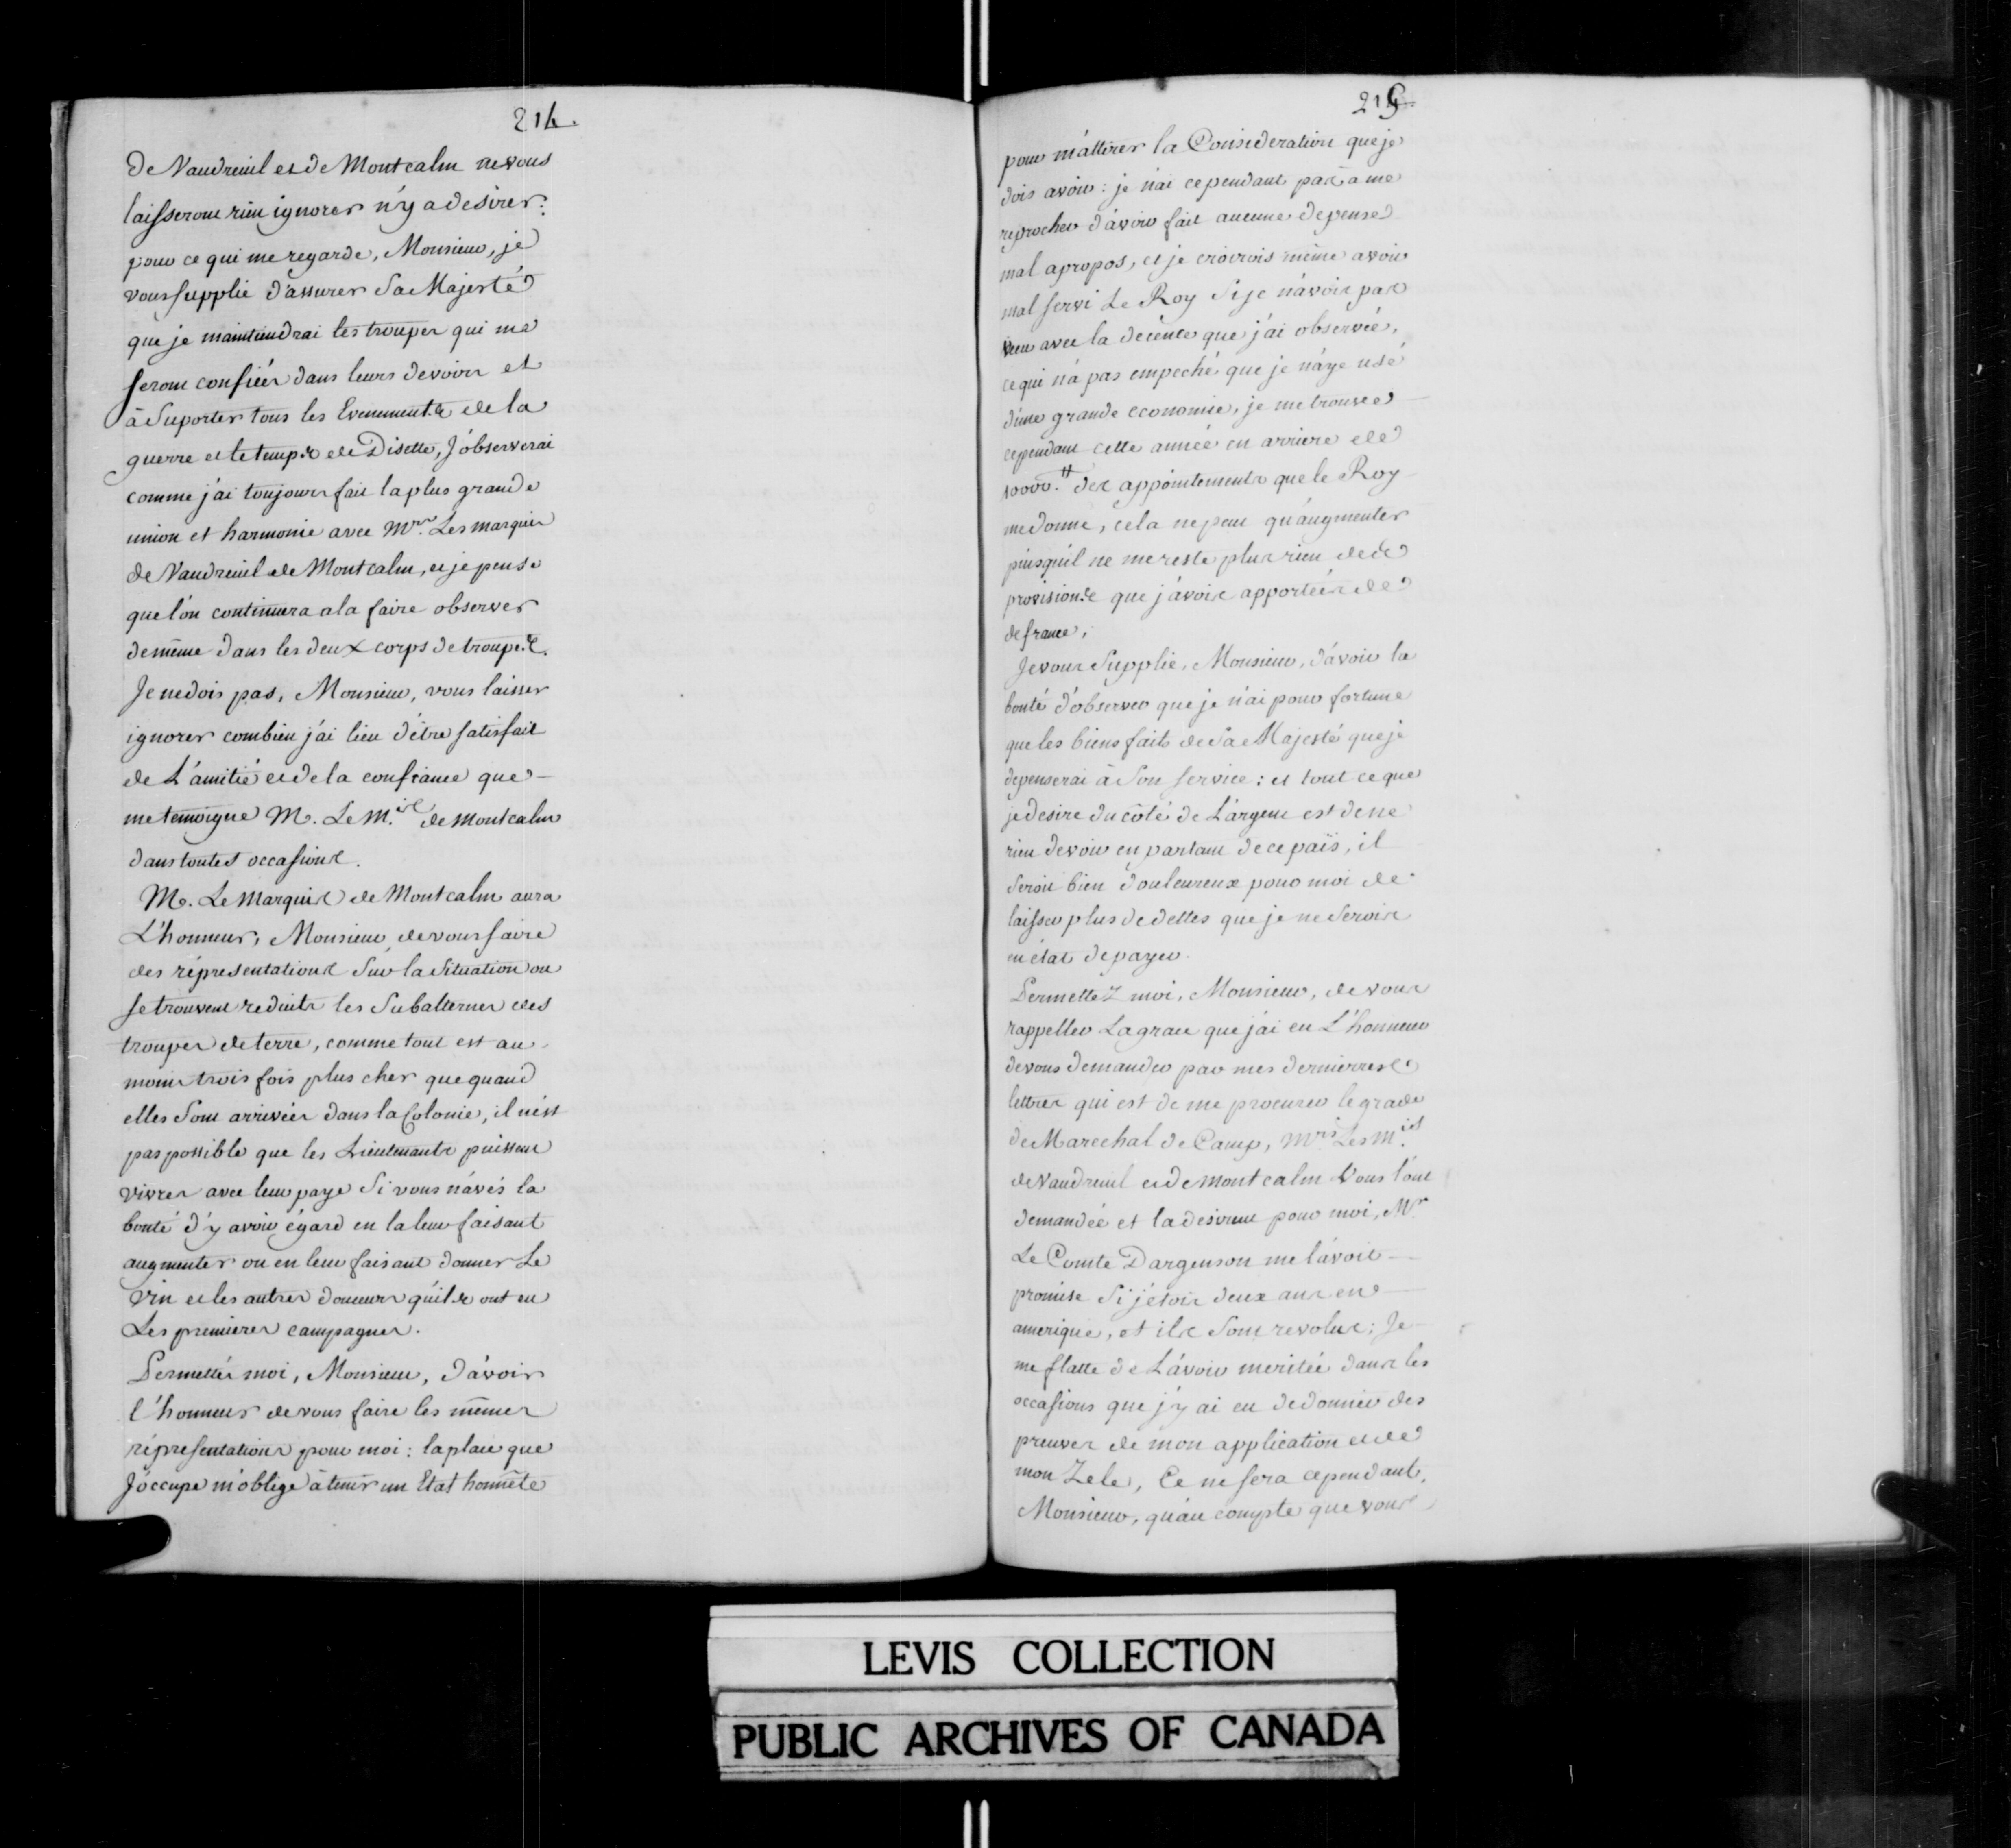 214.
de Vaudreuil et de Montcalm ne vous
laisseront rien ignorer n'y a desirer:
pour ce qui me regarde, Monsieur, je
vous supplie d'assurer Sa Majesté
que je maintiendrai les troupes qui me
seront confiées dans leurs devoirs et
à Suporter tous les Evenements de la
guerre et le temps de Disette, J'observerai
comme j'ai toujours fait la plus grande
union et harmonie avec Mrs. Les marquis
de Vaudreuil de Montcalm, et je pense
que l'on continuera a la faire observer
de même dans les deux corps de troupes.
Je ne dois pas, Monsieur, vous laisser
ignorer combien j'ai lieu d'être satisfait
de L'amitié et de la confiance que
me temoigne M. Le M.is de Montcalm
dans toutes occasions.
M. Le Marquis de Montcalm aura
L'honneur, Monsieur, de vous faire
des répresentations Sur la Situation ou
se trouvent reduits les Subalternes des
troupes de terre, comme tout est au
moins trois fois plus cher que quand
elles Sont arrivées dans la Colonie, il n'est
pas possible que les Lieutenants puissent
vivres avec leur paye Si vous n'avés la
bonté d'y avoir égard en la leur faisant
augmenter ou en leur faisant donner Le
vin et les autres douceurs qu'ils ont eu
Les premieres campagnes.
Permettés moi, Monsieur, d'avoir
l'honneur de vous faire les mêmes
répresentations pour moi: la place que
J'occupe m'oblige à tenir un Etat honnête
215
pour m'attirer la Consideration que je
dois avoir: je n'ai cependant pas à me
reprocher d'avoir fait aucune depense
mal apropos, et je croirois même avoir
mal servi Le Roy Si je n'avois pas
vecu avec la decence que j'ai observée,
ce qui n'a pas empeché que je n'aye usé
d'une grande economie, je me trouve
cependant cette année en arriere de
10000.tt des appointements que le Roy
me donne, cela ne peut qu'augmenter
puisqu'il ne me reste plus rien des
provisions que j'avois apportées de
de france;
Je vous Supplie, Monsieur, d'avoir la
bonté d'observer que je n'ai pour fortune
que les biens faits de Sa Majesté que je
depenserai à Son Service: et tout ce que
je desire du côté de L'argent est de ne
rien devoir en partant de ce païs, il
Seroit bien douleureux pour moi de
laisser plus de dettes que je ne Serois
en état de payer.
Permettez moi, Monsieur, de vous
rappeller La grace que j'ai eu L'honneur
de vous demander par mes dernierres
lettres qui est de me procurer le grade
de Marechal de Camp, Mrs Les M.is
de Vaudreuil et de Montcalm Vous l'ont
demandée et la desirent pour moi, Mr
Le Comte Dargenson me l'avoit
promise Si j'etois deux ans en
amerique, et ils Sont revolus; Je
me flatte de L'avoir meritée dans les
occasions que j'y ai eu de donner des
preuves de mon application et de
mon Zele, Ce ne sera cependant,
Monsieur, qu'au compte que vous
LEVIS COLLECTION
PUBLIC ARCHIVES OF CANADA